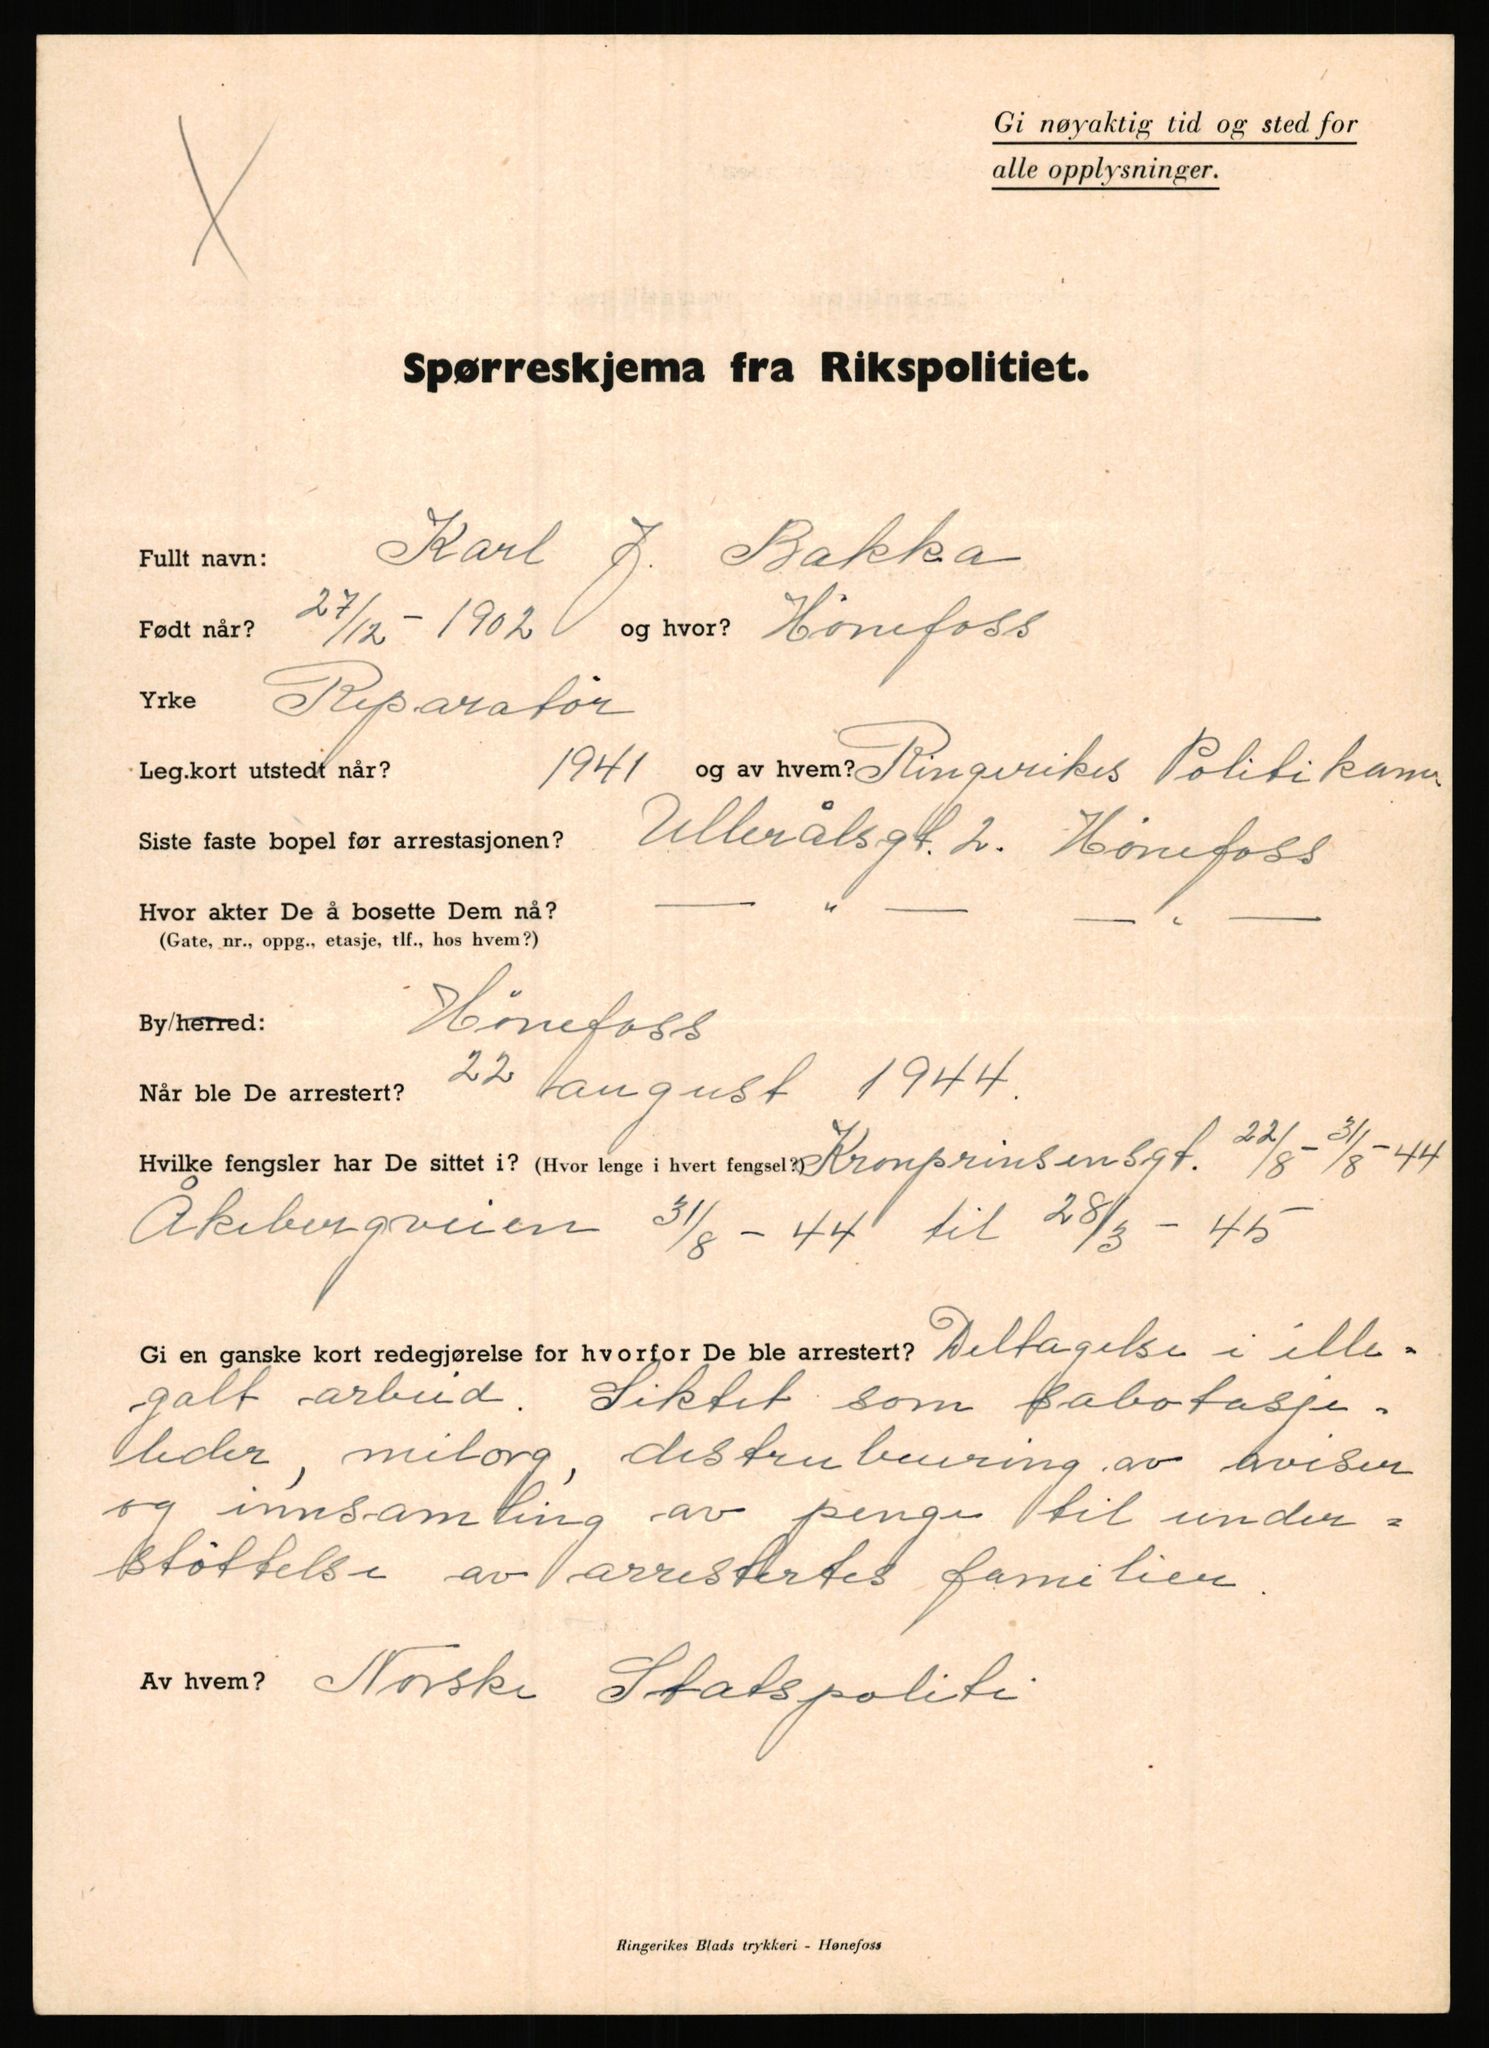 Gi nøyaktig tid og sted for
alle opplysninger.
Spørreskjema fra Rikspolitiet.
Fullt navn: Karl J. Bakka
Født når? 27/12 - 1902 og hvor? Hönefoss
Yrke Reparatör
Leg.kort utstedt når? 1941 og av hvem? Ringerikes Politikam
Siste faste bopel før arrestasjonen? Ullerålsgt. 2. Hönefoss
Hvor akter De å bosette Dem nå? — " — — " —
(Gate, nr., oppg., etasje, tlf., hos hvem?)
By/herred: Hönefoss
Når ble De arrestert? 22 august 1944.
Hvilke fengsler har De sittet i? (Hvor lenge i hvert fengsel?) Kronprinsensgt. 22/8 - 31/8 - 44
Åkebergveien 31/8 - 44 til 28/3 - 45
Gi en ganske kort redegjørelse for hvorfor De ble arrestert? Deltagelse i ille-
galt arbeid. Siktet som sabotasje-
leder, milorg, distrubuering av aviser
og innsamling av penge til under=
støttelse av arrestertes familier.
Av hvem? Norske Statspoliti
Ringerikes Blads trykkeri - Hønefoss